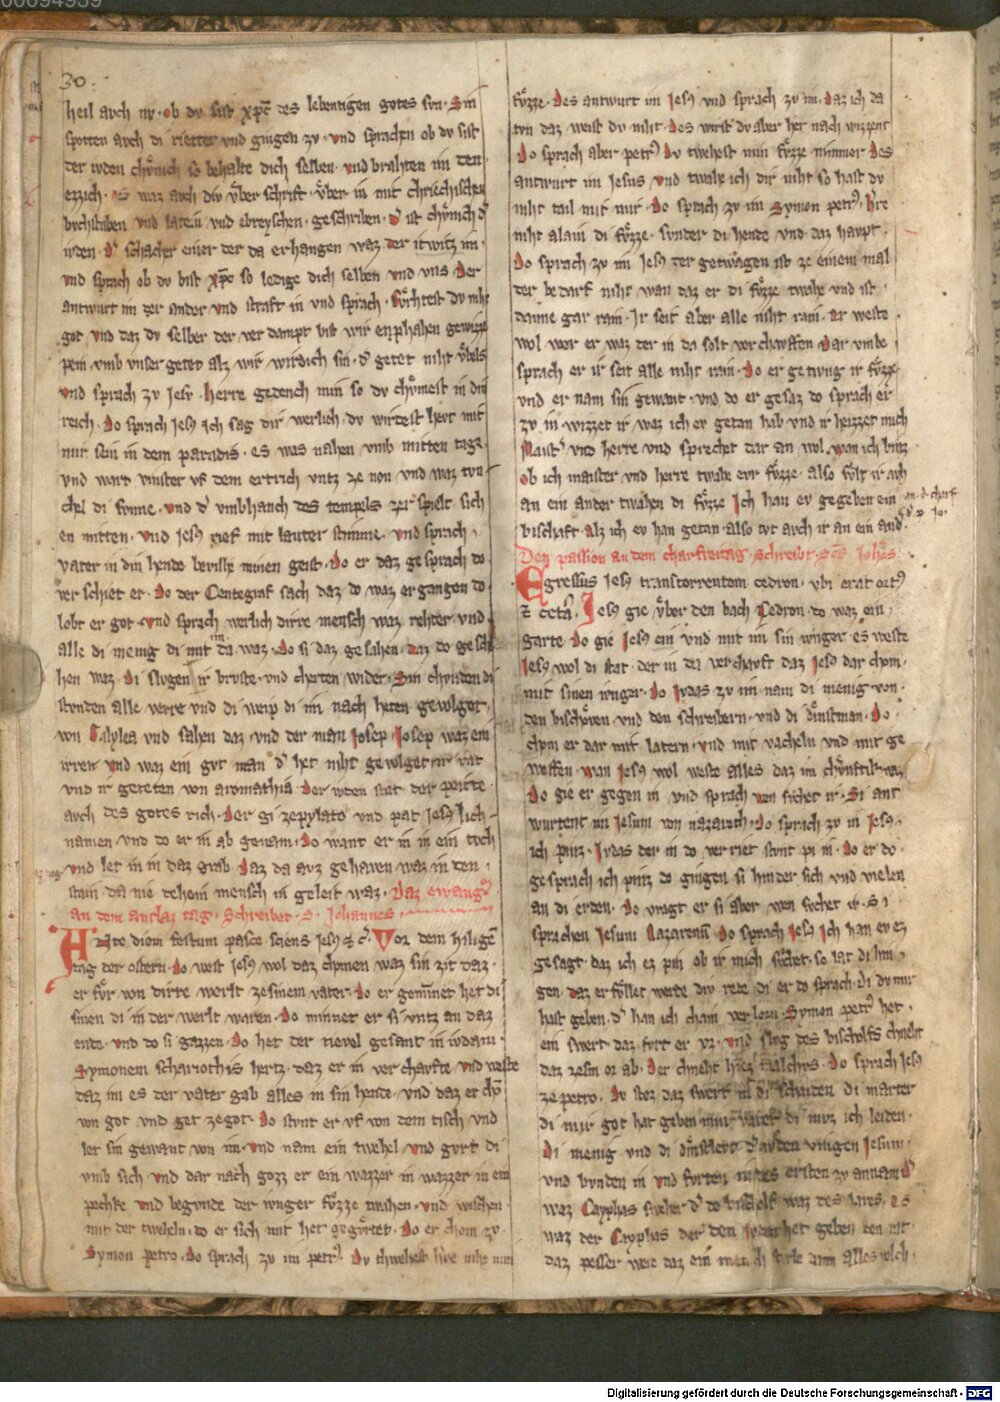 00094939
30.
heil avch nv. ob dv sist xpc des lebentigen gotes svn. Sin
spotten avch di rietter vnd giengen zv. vnd sprachen ob dv sist
der ivden chvnich so behalte dich selben. vnd brahten im den
ezzich. es waz avch div vber schrift. vber in mit chriechischen
bvchstaben vnd latein vnd ebreyschen. geschriben. d ist chvnich d
ivden. Der schacher einer der da erhangen waz der itwitz im.
vnd sprach ob dv bist xpc so ledige dich selben vnd vns Der
antwurt im der ander vnd straft in vnd sprach. fvrhtest dv niht
got vnd daz dv selber der ver dampt bist wir enphahen gewizze
pein vmb vnser getet alz wir wirdich sin. d getet niht vbels
vnd sprach zv Jesv. herre gedench min so dv chvmest in din
reich. Do sprach Jesus ich sag dir werlich. dv wirdest hevt mit
mir sein in dem paradis. es was nahen vmb mitten tage
vnd wart vinster vf dem ertrich vntz ze non vnd waz tvn
chel di svnne. vnd d vmbhanch des tempels zer spielt sich
en mitten. vnd Jesus rief mit lauter stimme. vnd sprach.
vater in din hende bevilhe minen geist. Do er daz gesprach do
ver schiet er. Do der Centegraf sach daz do waz ergangen do
lobt er got. vnd sprach werlich dirre mensch waz rehter vnd
alle di menig di mit im da waz. do si daz gesahen. daz do gesche
hen waz. di slvgen ir brvste. vnd cherten wider. Sin chvnden di
stvnden alle verre vnd di weip di im nach heten gevolget
von Galylea vnd sahen daz. vnd der man Josep. Josep waz ein
irren vnd waz ein gvt man d het niht gevolget ir rat
vnd ir geteten von aromathia der ivden stat der peitte
avch des gotes rich. Der gi ze pylato vnd pat Jesus lich
namen vnd do er in ab genam. do want er in in ein tvch
vnd let in in daz grab. Daz da avz gehaven waz in den
stain da nie dehein mensch in geleit waz. Daz ewangel
an dem antlaz tag. Schreibet. S. Johannes.
Ante diem festum pasce sciens Jesus et c. Vor dem hiligen
tag der ostern. do west Jesus wol daz chomen waz sin zit daz
er fvr von dirre werlt ze sinem vater. Do er geminnet het di
sinen di in der werlt waren. Do minnet er si vntz an daz
ende. vnd do si gazzen. Do het der tievel gesant in ivdam
Symonem schariothis hertz. daz er in ver chavfte vnd weste
daz im es der vater gab alles in sin hende. vnd daz er chom
von got vnd get ze got. Do stvnt er vf von dem tisch vnd
let sin gewant von im. vnd nam ein twehel vnd gvrt di
vmb sich vnd dar nach gozz er ein wazzer in wazzer in ein
pechke vnd begvnde der ivnger fvzze washen. vnd wischen
mit der twelein. do er sich mit het gegvrtet. Do er chom zv
Symon petro. Do sprach zv im petrus. Dv thwehest herre mir min
fvzze. Des antwurt im Jesus vnd sprach zv im. Daz ich da
tvn daz weist dv niht. des wirst dv aber her nach wizzent
Do sprach aber petrus Dv twehest min fvzze nimmer Des
antwurt im Jesus vnd twahe ich dir niht so hast dv
niht tail mit mir. Do sprach zv im Symon petrus. herre
niht alain di fvzze. svnder di hende vnd. daz havpt.
Do sprach zv im Jesus der getwagen ist ze einem mal
der bedarf niht wan daz er di fvzze twahe vnd ist
danne gar rain. Ir seit aber alle niht rain. er weste
wol wer er waz der in da solt ver chavffen. Dar vmbe
sprach er ir seit alle niht rain. Do er getwug ir fvzze
vnd er nam sin gewant. vnd do er gesaz do sprach er
zv in wizzet ir waz ich ev getan hab vnd ir heizzet mich
Maister vnd herre vnd sprechet dar an wol. wan ich binz
ob ich maister vnd herre twahe evr fvzze. also svlt ir avch
an ein ander twahen di fvzze Ich han ev gegeben ein
bischaft. alz ich ev han getan. also tvt avch ir an ein and
Den passion an dem charfreitag. schreibt. scs. Johes.
Egressus Jesus trans torrentem cedron. vbi erat ortus
et cetera. Jesus gie vber den bach Cedron. do waz ein
garte. Do gie Jesus ein vnd mit im sin ivnger. es weste
Jesus wol di stat. der in da verchavft daz Jesus dar chom.
mit sinen ivnger. Do Ivdas zv im nam di menig von.
den bischoven. vnd den schreibern. vnd di dinstman. Do.
chom er dar mit latern. vnd mit vacheln vnd mit ge
weffen. wan Jesus wol weste alles daz im chvnftik waz
Do gie er gegen in vnd sprach wen svchet ir. Si ant
wurtent im Jesum von nazareth. do sprach zv in Jesus.
ich pinz. Ivdas der in do verriet stvnt pi in. Do er do.
gesprach ich pinz do gingen si hinder sich vnd vielen
an di erden. Do vragt er si aber wen svchet ir. Si
sprachen Jesum Nazarenum. do sprach Jesus Ich han ev ez
gesagt daz ich ez pin ob ir mich svchet. so lat di hin.
gen. daz er fvllet werde div rede di er do sprach. di dv mir
hast geben. d han ich chain verlorn. Symon petrus het.
ein swert daz zvrt er vz. vnd slvg des bischolfs chneht
daz zesm or ab. Der chneht hiez Malchvs. Do sprach Jesus
ze petro. Dv stoz daz swert in di schaiden di marter
di mir got hat geben min vater. di mvz ich leiden.
Di menig vnd di dinstlevt d ivden viengen Jesum.
vnd bvnden in vnd fvrten in des ersten zv annam d
waz Cayphas sweher d do bischolf waz des iares. es
waz der Cayphas der den Ivden het geben den rat.
daz pesser were daz ein mensch stvrbe dann alles volch.
Digitalisierung gefördert durch die Deutsche Forschungsgemeinschaft - DFG